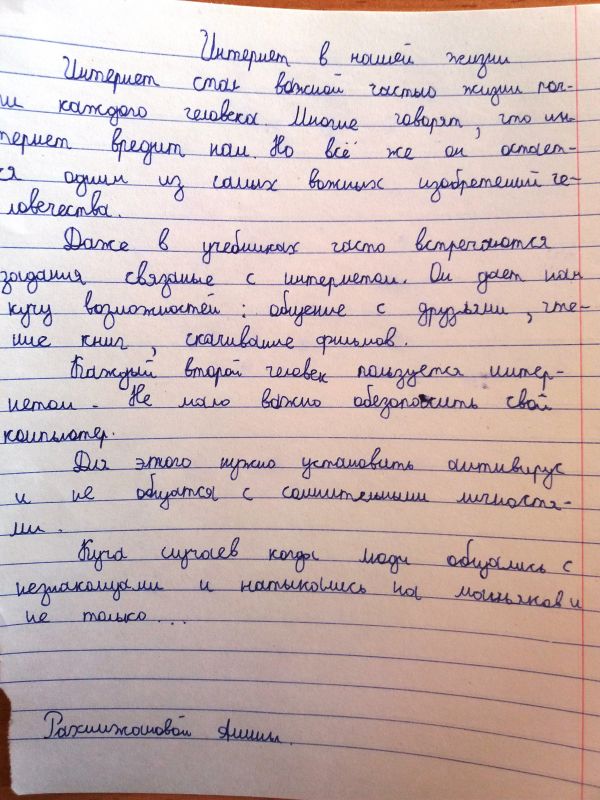 Интернет в нашей жизни
Интернет стал важной частью жизни поч-
и каждого человека. Многие говорят, что ин-
тернет вредит нам. Но всё же он остает-
ся одним из самых важных изобретений че-
ловечества.
Даже в учебниках часто встречаются
задания связаные с интернетом. Он дает нам
кучу возможностей: общение с друзьями, чте-
ние книг, скачивание фильмов.
Каждый второй человек пользуется интер-
нетом. Не мало важно обезопасить свой
компьютер.
Для этого нужно установить антивирус
и не общатся с сомнительными личностя-
ми.
Куча случаев когда люди общались с
незнакомцами и натыкались на маньяков и
не только...
Рахимжановой